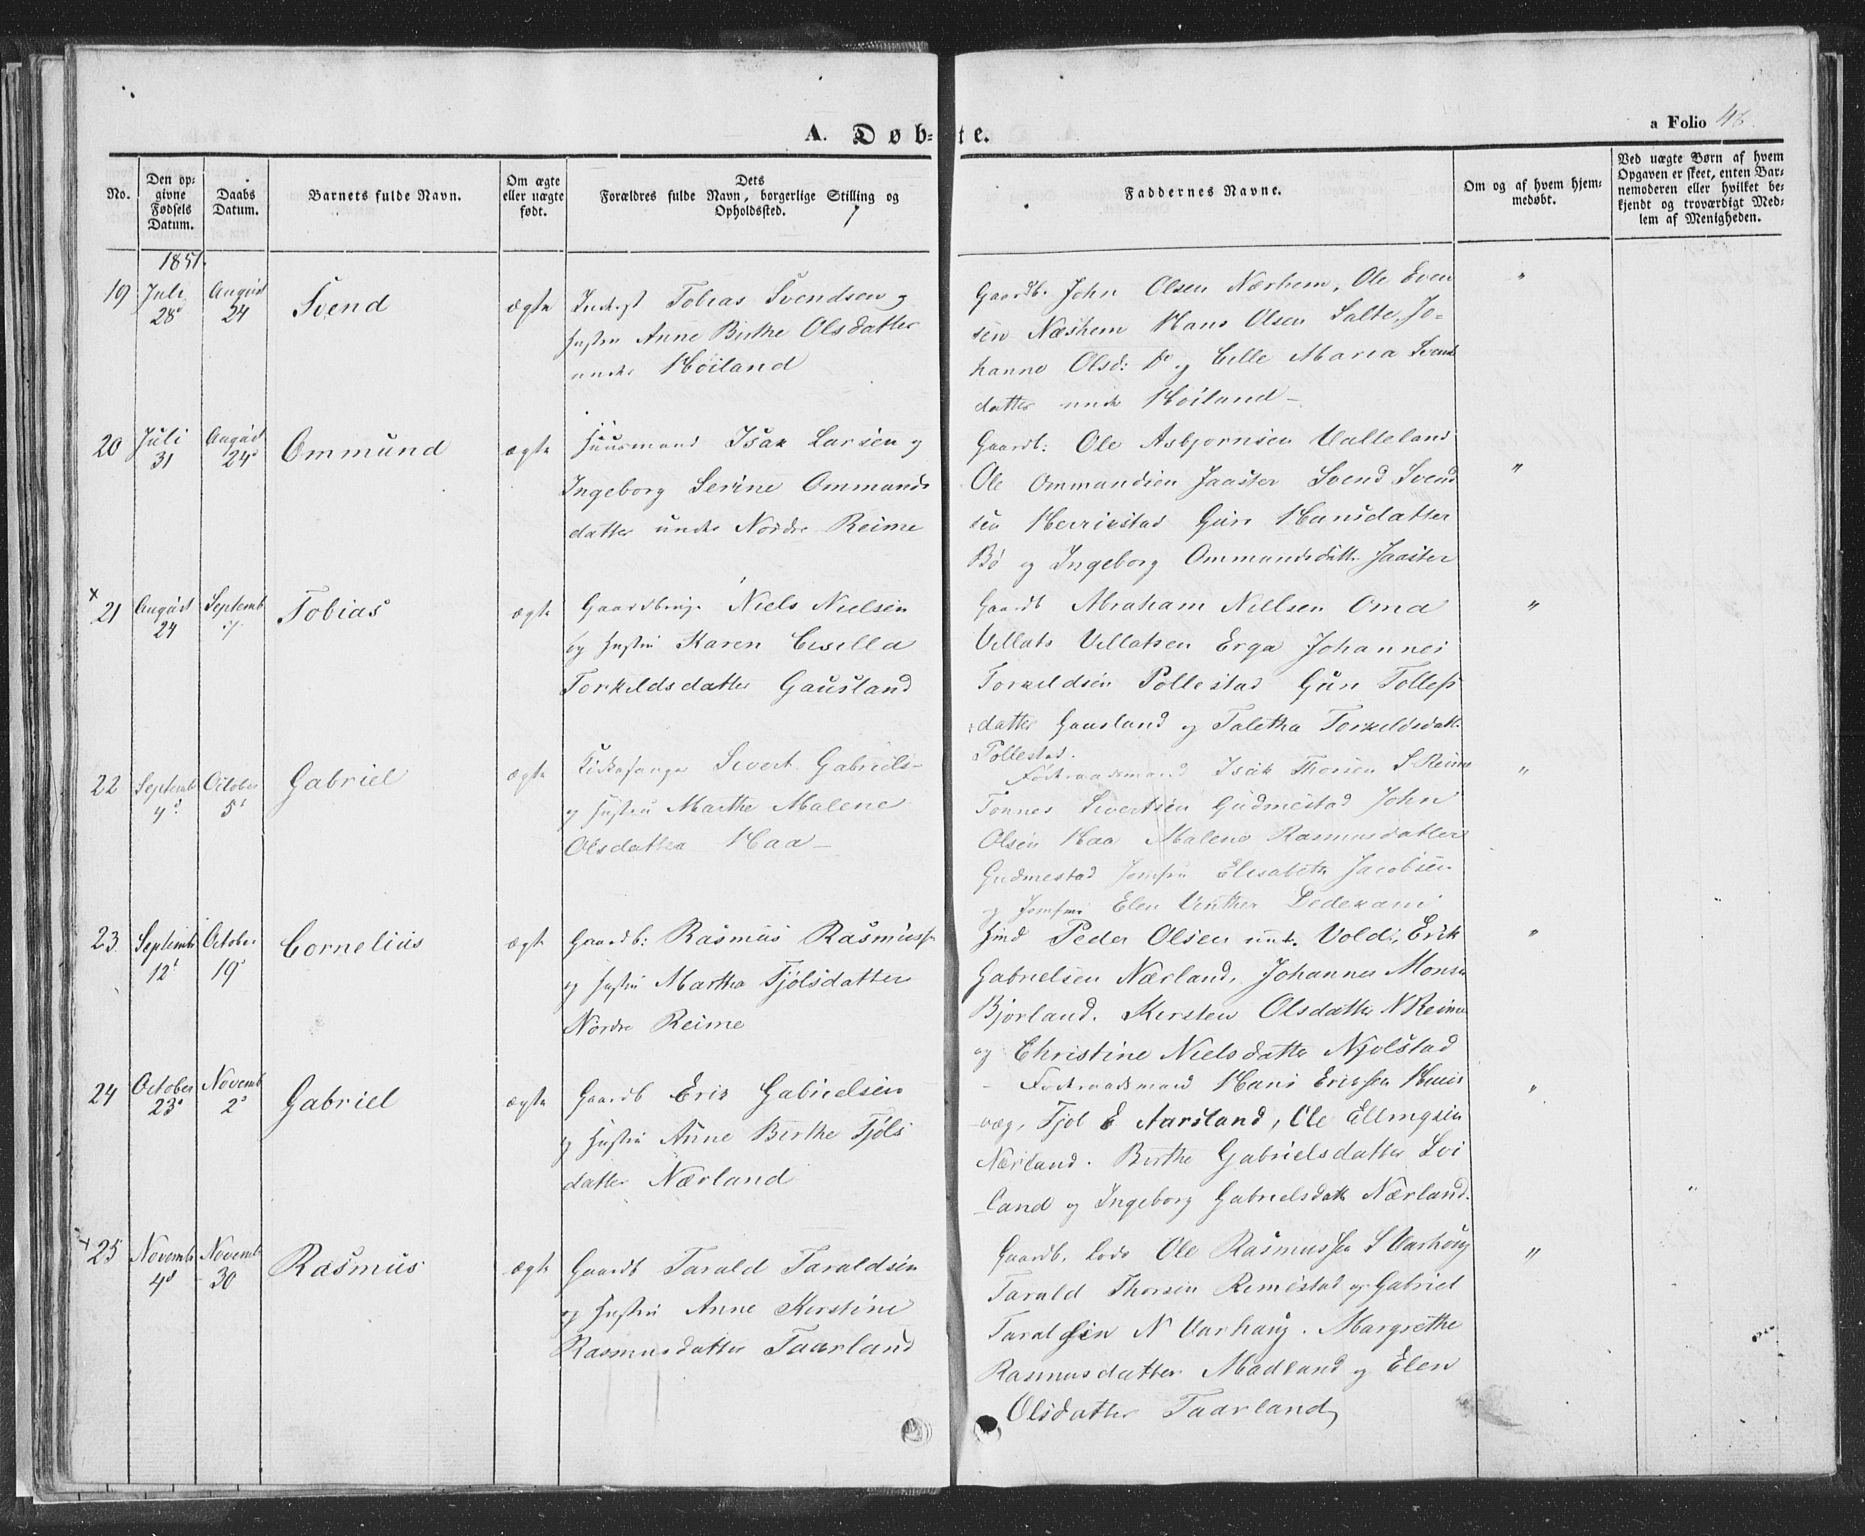 A. Døbte.
a Folio 48.
No.
Den opgivne Fødsels Datum.
Daabs Datum.
Barnets fulde Navn.
Om ægte eller uægte født.
Dets Forældres fulde Navn, borgerlige Stilling og Opholdssted.
Faddernes Navne.
Om og af hvem hjemmedøbt.
Ved uægte Børn af hvem Opgaven er skeet, enten Barnemoderen eller hvilket bekjendt og troværdigt Medlem af Menigheden.
1851.
19 Juli 28 August 24 Svend ægte
Inderst Tobias Svendsen og
Hustru Anne Birthe Olsdatter
under Høiland
Gaardb. John Olsen Nærhem, Ole Even
sen Næshem Hans Olsen Salte, Jo-
hanne Olsd: do og Cille Maria Svends
datter under Høiland -
"
20 Juli 31 August 24 Ommund ægte
Huusmand Isak Larsen og
Ingeborg Serine Ommunds
datter under Nordre Reime
Gaardb: Ole Asbjørnsen Valleland
Ole Ommundsen Jaaster Svend Svend
sen Herrikstad Guri Hansdatter
Bø og Ingeborg Ommundsdatt. Jaaster
"
x 21 August 24 Septemb 7 Tobias ægte
Gaardbrug. Niels Nielsen
og Hustru Karen Cesilla
Torkeldsdatter Gausland
Gaardb Abraham Nielsen Oma
Villats Villatsen Erga Johannes
Torkeldsen Pollestad Guri Tollefs
datter Gausland og Taletha Torkeldsdatt.
Pollestad.
"
22 Septemb 4 October 5 Gabriel ægte
Kirkesanger Sivert Gabriels-
og Hustru Marthe Malene
Olsdatter Haa -
Forstandsmand Isak Thorsen S Reime
Tønnes Sivertsen Gudmestad John
Olsen Haa Malene Rasmusdatter
Gudmestad Jomfru Elisabeth Jacobsen
og Jomfru Elen Vinther Dedekam
"
23 Septemb 12 October 19 Cornelius ægte
Gaardb: Rasmus Rasmuss
og Hustru Martha Tjølsdatter
Nordre Reime
Huusmd Peder Olsen und. Vold, Erik
Gabrielsen Nærland, Johannes Monsen
Bjorland. Kirsten Olsdatter N Reime
og Christine Nielsdatter Njolstad
"
24 October 23 Novemb 2 Gabriel ægte
Gaardb Erik Gabrielsen
og Hustru Anne Birthe Tjøls
datter Nærland
- Forstandsmand Hans Eriksen Huus
væg, Tjøl E Aarsland, Ole Ellingsen
Nærland. Birthe Gabrielsdatter Lvi
land og Ingeborg Gabrielsdatt Nærland.
"
"
x 25 Novemb 4 Novemb 30 Rasmus ægte
Gaardb Tarald Taraldsen
og Hustru Anne Kirstine
Rasmusdatter Taarland
Gaardb. Ole Rasmussen S Varhoug
Tarald Thorsen Rimestad og Gabriel
Taraldsen N Varhaug. Margrethe
Rasmusdatter Madland og Elen
Olsdatter Taarland
"